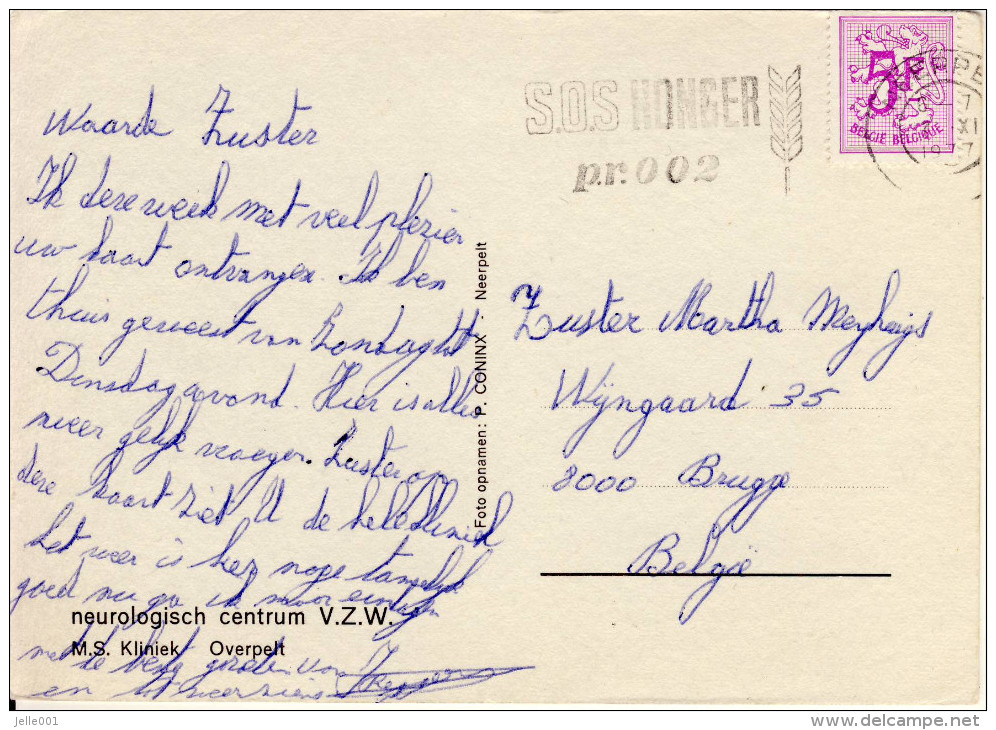 S.O.S HONGER
p.r. 002
5F
BELGIE BELGIQUE
XI
1977
Waarde Zuster
Ik deze week met veel plezier
uw kaart ontvangen. Ik ben
thuis geweest van Zondag tot
Dinsdag avond. Hier is alles
weer gelijk vroeger. Zuster op
deze kaart ziet U de hele kliniek
het weer is hier noge tamelijk
goed nu ga ik maar eindigen
met de beste groeten van
en tot weerziens
Foto opnamen: P. CONINX - Neerpelt
Zuster Martha
Wijngaard 35
8000 Brugge
België
neurologisch centrum V.Z.W.
M.S. Kliniek Overpelt
jelle001
www.delcampe.net